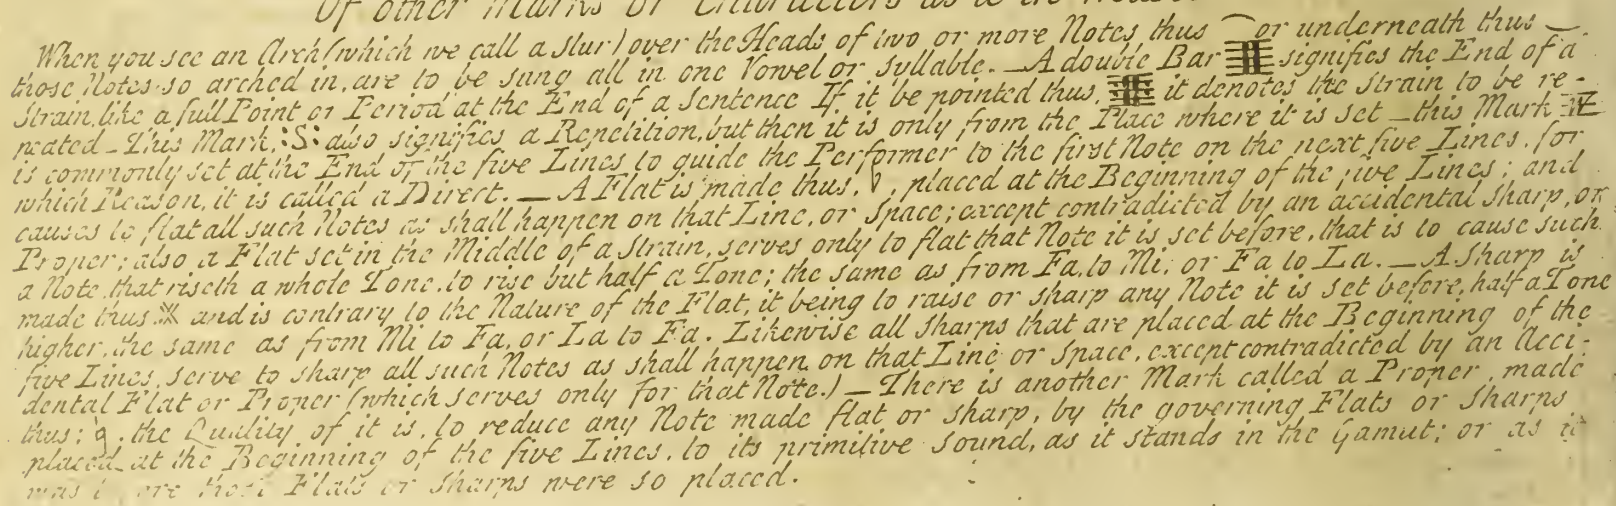 Of other Marks or Characters as
When you see an Arch (which we call a slur) over the Heads of two or more Notes thus ⁀ or underneath thus ‿
those Notes so arched in, are to be sung all in one Vowel or Syllable. — A double Bar signifies the End of a
Strain, like a full Point or Period at the End of a Sentence If it be pointed thus, it denotes the Strain to be re-
peated — This Mark, :S: also signifies a Repetition, but then it is only from the Place where it is set — this Mark
is commonly set at the End of the five Lines to guide the Performer to the first Note on the next five Lines, for
which Reason, it is called a Direct. — A Flat is made thus, ♭, placed at the Beginning of the five Lines; and
causes to flat all such Notes as shall happen on that Line, or Space; except contradicted by an accidental Sharp, or
Proper; also a Flat set in the Middle of a Strain, serves only to flat that Note it is set before, that is to cause such
a Note, that riseth a whole Tone, to rise but half a Tone; the same as from Fa, to Mi, or Fa to La. — A Sharp is
made thus ※ and is contrary to the Nature of the Flat, it being to raise or sharp any Note it is set before, half a Tone
higher, the same as from Mi to Fa, or La to Fa. Likewise all Sharps that are placed at the Beginning of the
five Lines, serve to sharp all such Notes as shall happen on that Line or Space, except contradicted by an Acci-
dental Flat or Proper (which serves only for that Note.) — There is another Mark called a Proper, made
thus; ♮, the Quality of it is, to reduce any Note made flat or sharp, by the governing Flats or Sharps
placed at the Beginning of the five Lines, to its primitive Sound, as it stands in the Gamut; or as it
was Flats or Sharps were so placed.